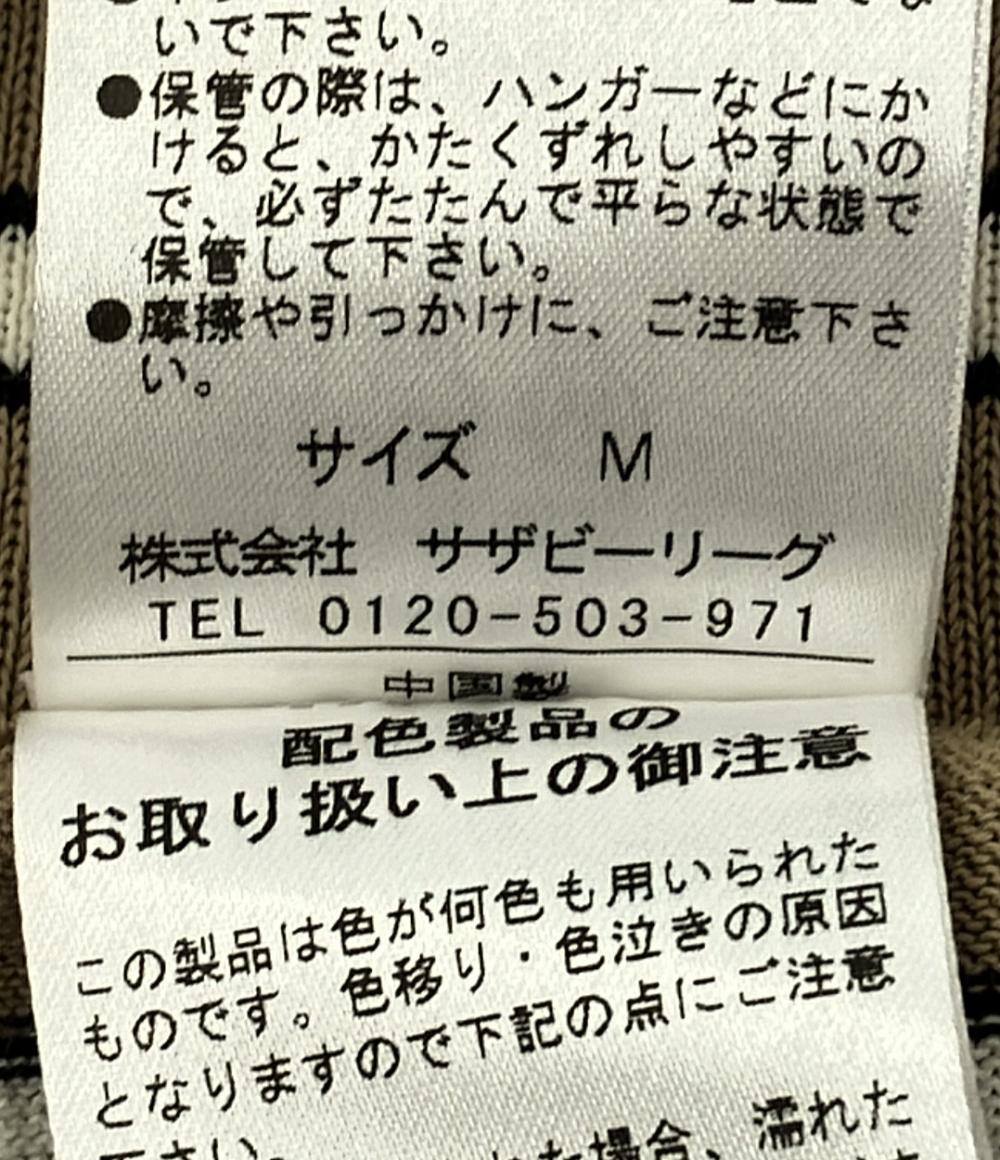 いで下さい。
●保管の際は、ハンガーなどにか
けると、かたくずれしやすいの
で、必ずたたんで平らな状態で
保管して下さい。
●摩擦や引っかけに、ご注意下さ
い。
サイズ　M
株式会社　サザビーリーグ
TEL 0120-503-971
中国製
配色製品の
お取り扱い上の御注意
この製品は色が何色も用いられた
ものです。色移り・色泣きの原因
となりますので下記の点にご注意
下さい。
た場合、濡れた